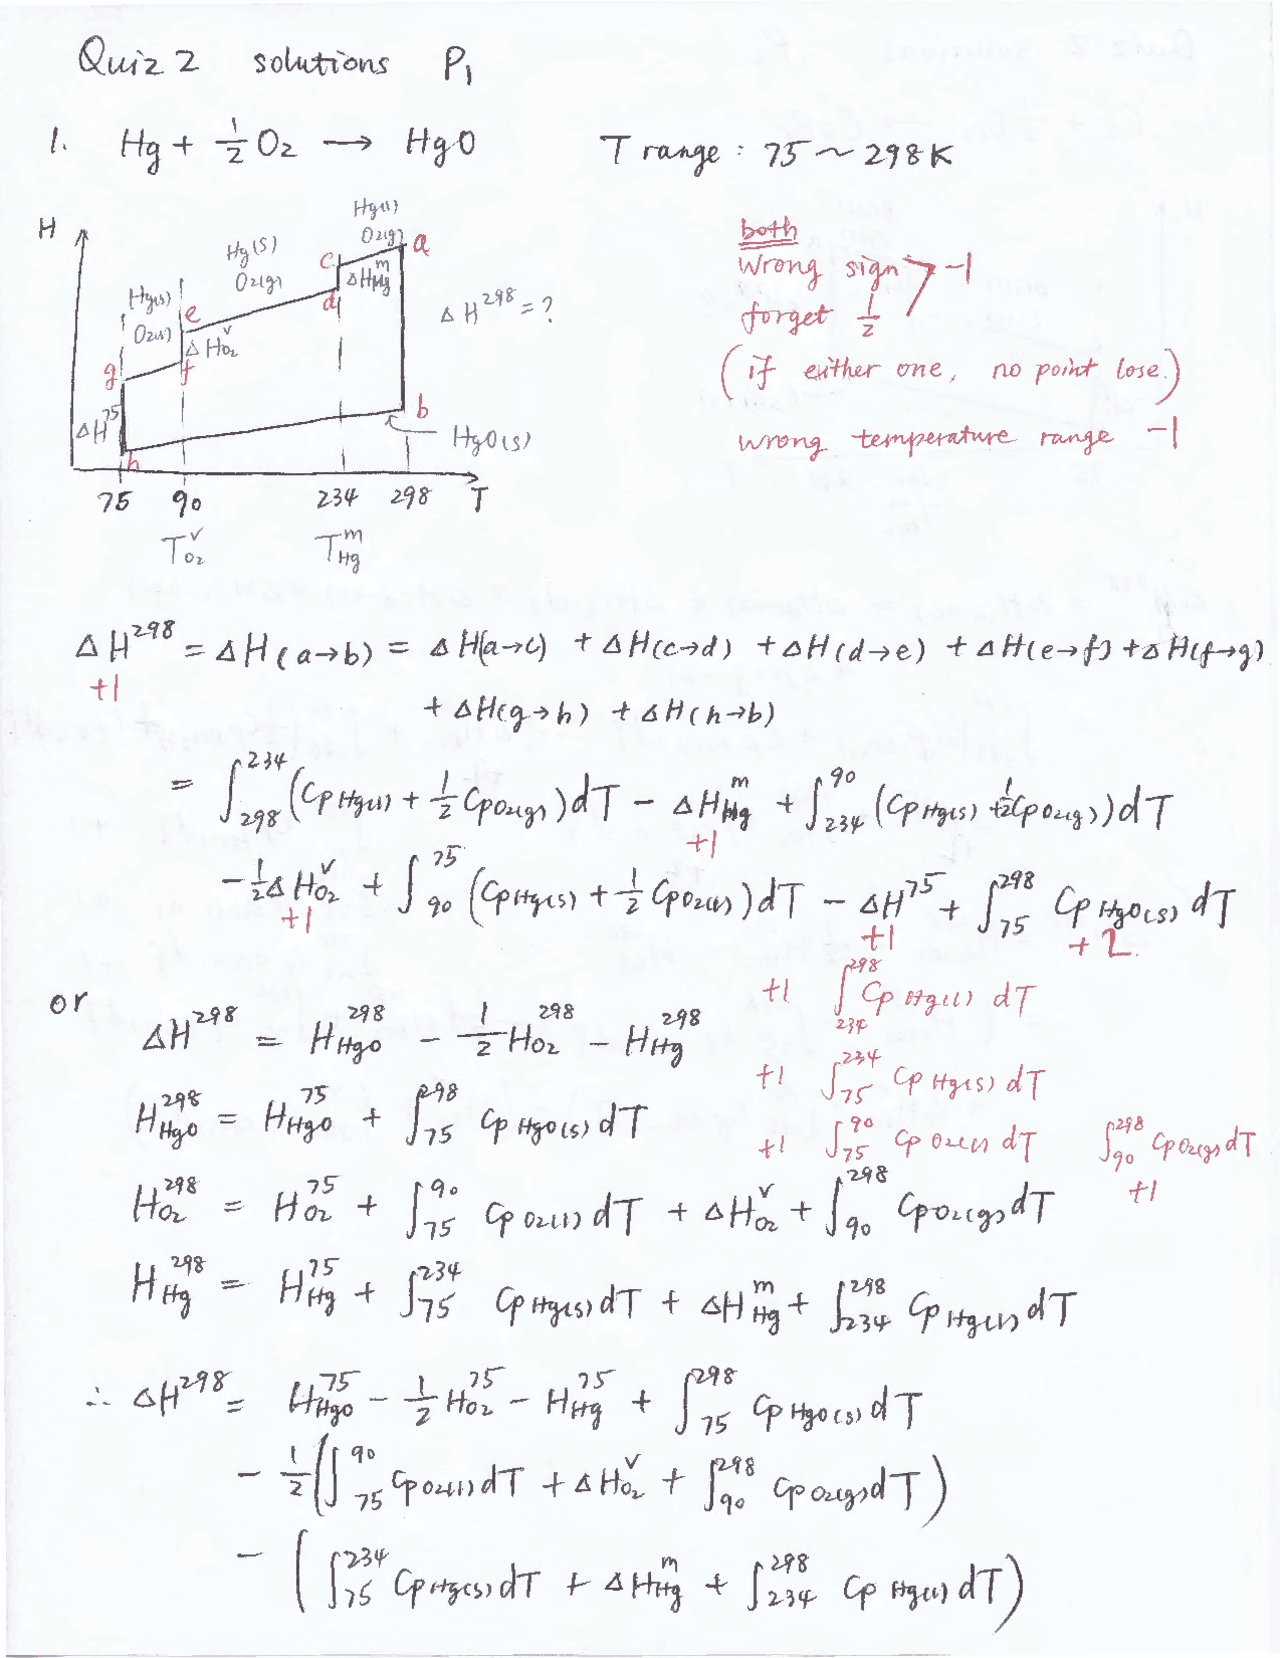 Quiz 2 solutions P₁
1. Hg + 1/2 O₂ → HgO T range : 75 ~ 298 K
H
Hg(l)
O₂(g)
a
Hg(s)
O₂(g)
c
ΔH^m_Hg
d
Hg(s)
O₂(l)
e
ΔH^v_O₂
f
g
ΔH^75
h
b
HgO(s)
ΔH^298 = ?
75 90 234 298 T
T^v_O₂ T^m_Hg
both
wrong sign
forget 1/2 > -1
(if either one, no point lose.)
wrong temperature range -1
ΔH^298 = ΔH(a→b) = ΔH(a→c) + ΔH(c→d) + ΔH(d→e) + ΔH(e→f) + ΔH(f→g)
+1
+ ΔH(g→h) + ΔH(h→b)
= ∫_298^234 (Cp Hg(l) + 1/2 Cp O₂(g)) dT - ΔH^m_Hg + ∫_234^90 (Cp Hg(s) + 1/2 Cp O₂(g)) dT
+1
- 1/2 ΔH^v_O₂ + ∫_90^75 (Cp Hg(s) + 1/2 Cp O₂(l)) dT - ΔH^75 + ∫_75^298 Cp HgO(s) dT
+1 +1 +2
+1 ∫_234^298 Cp Hg(l) dT
or
ΔH^298 = H^298_HgO - 1/2 H^298_O₂ - H^298_Hg
+1 ∫_75^234 Cp Hg(s) dT
H^298_HgO = H^75_HgO + ∫_75^298 Cp HgO(s) dT
+1 ∫_75^90 Cp O₂(l) dT ∫_90^298 Cp O₂(g) dT
+1
H^298_O₂ = H^75_O₂ + ∫_75^90 Cp O₂(l) dT + ΔH^v_O₂ + ∫_90^298 Cp O₂(g) dT
H^298_Hg = H^75_Hg + ∫_75^234 Cp Hg(s) dT + ΔH^m_Hg + ∫_234^298 Cp Hg(l) dT
∴ ΔH^298 = H^75_HgO - 1/2 H^75_O₂ - H^75_Hg + ∫_75^298 Cp HgO(s) dT
- 1/2 (∫_75^90 Cp O₂(l) dT + ΔH^v_O₂ + ∫_90^298 Cp O₂(g) dT)
- (∫_75^234 Cp Hg(s) dT + ΔH^m_Hg + ∫_234^298 Cp Hg(l) dT)